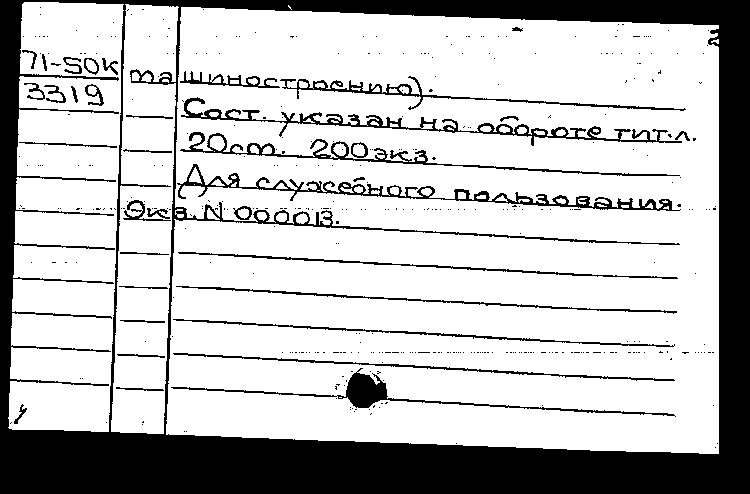 71-50к
3319
машиностроению).
Сост. указан на обороте тит.л.
20 см. 200 экз.
Для служебного пользования.
Экз. N 000013.